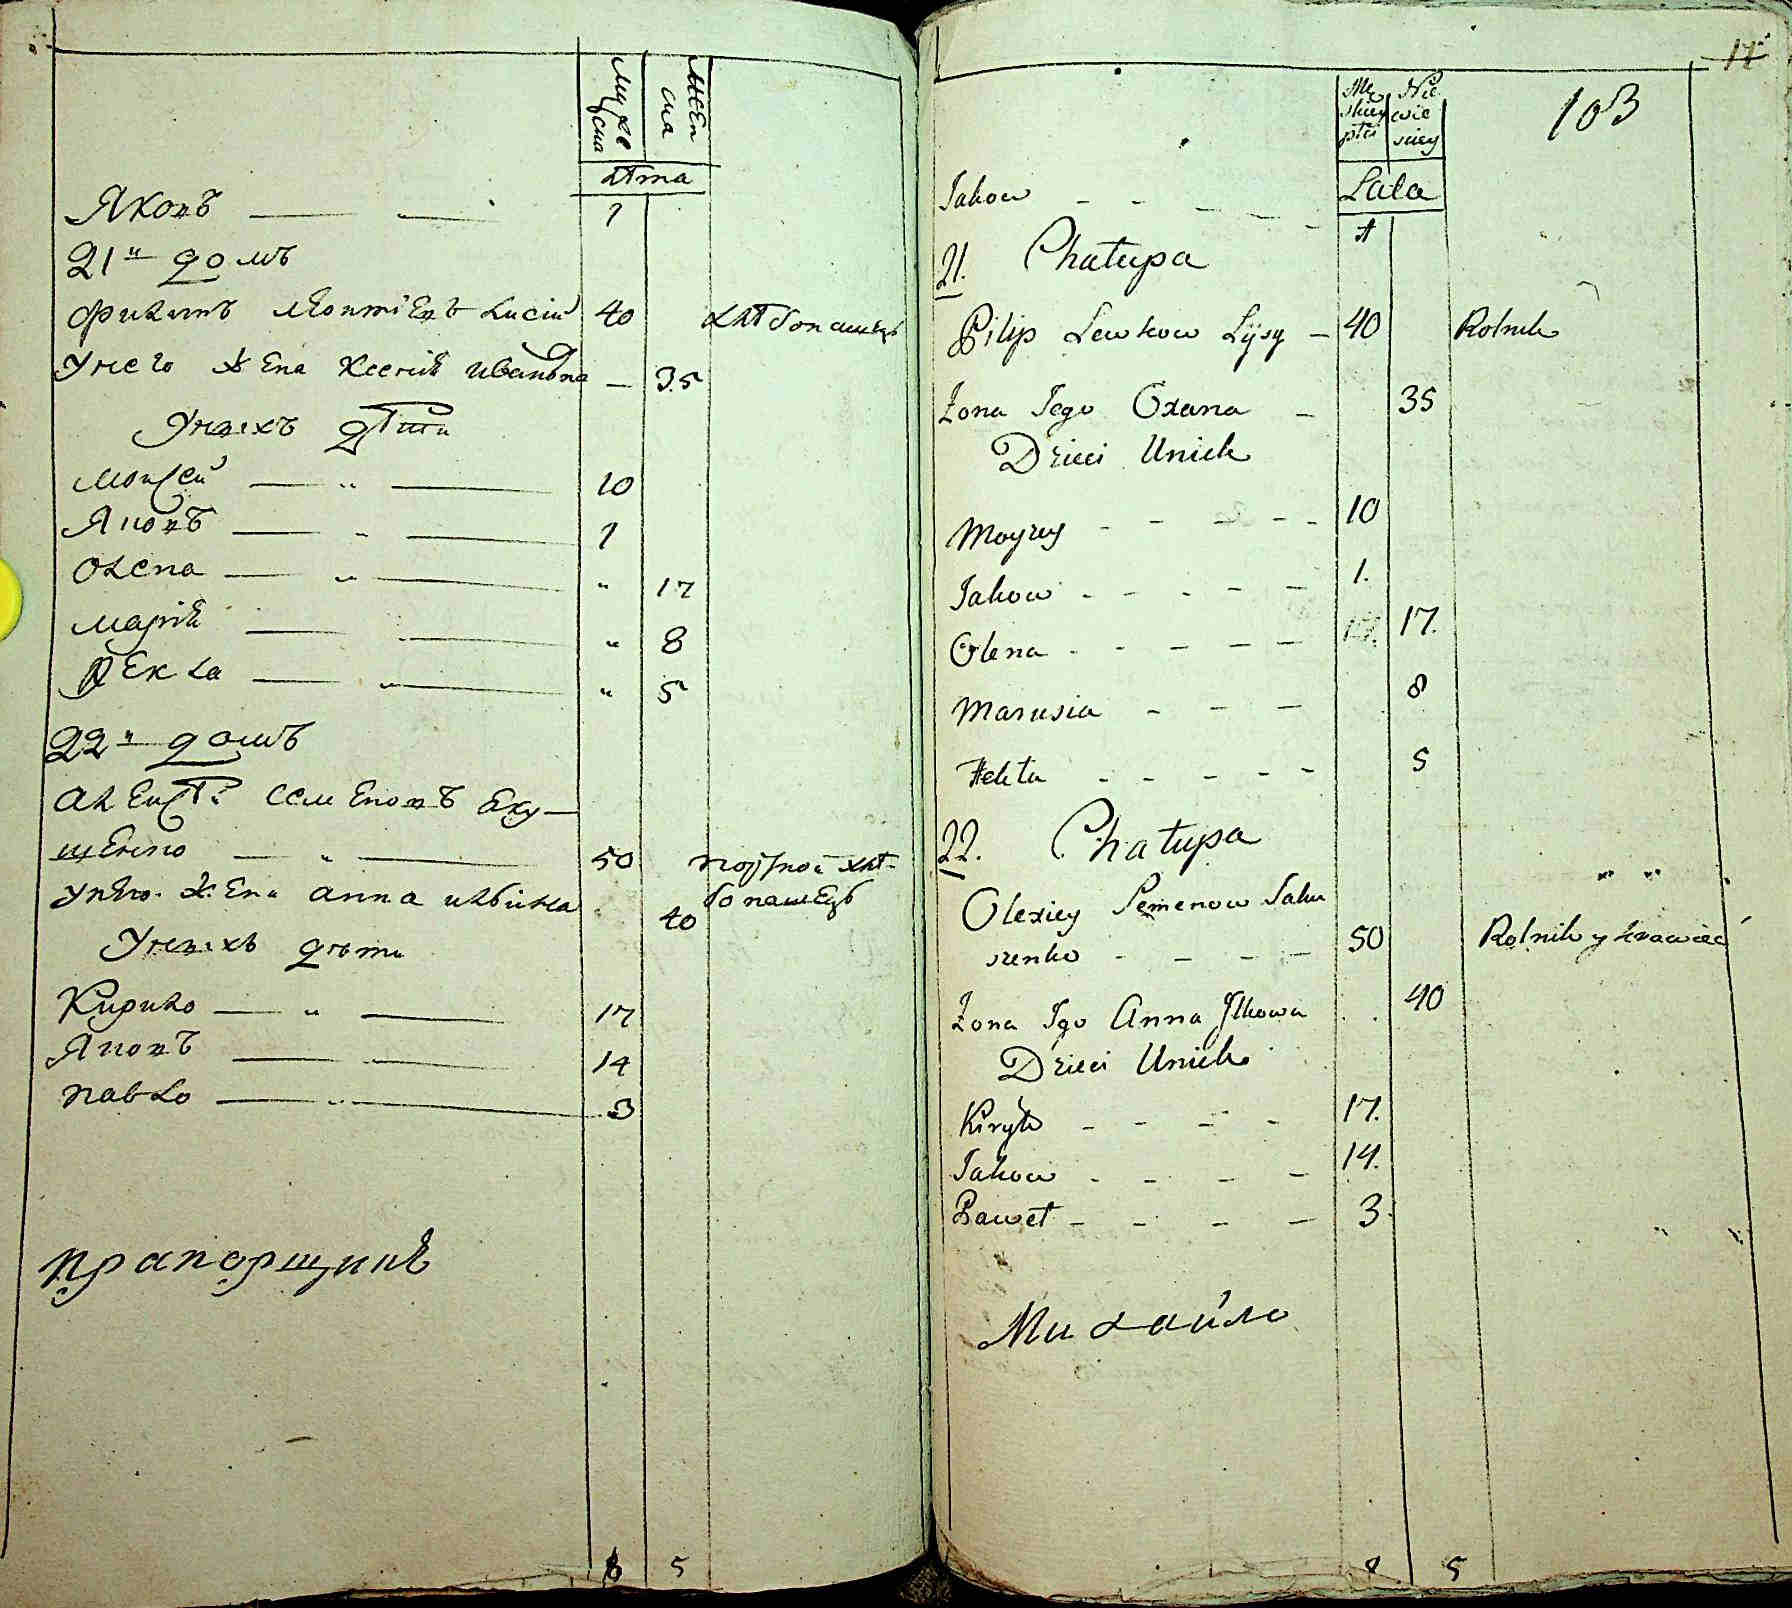 Муже
ска
Жен
ска
лѣта
Яковъ — — 1
21й домъ
Филипъ Леонтіевъ Лисий 40 хлѣбопашецъ
У него жена Ксенія Иванъна — 35
У нихъ дѣти
Моисей — " — 10
Яковъ — " — 1
Олена — " — " 17
Марія — — " 8
Фекла — " — " 5
22й домъ
Алексѣй Семеновъ Яку-
щенко — " — 50 портной хлѣ-
бопашецъ
У него жена Анна Илкова " 40
У нихъ дѣти
Кирило — " — 17
Яковъ — — 14
Павло — " — 3
прапорщикъ
8 5
17
103
Mę
skiey
płci
Nie
wie
sciey
Lata
Jakow - - - - - 1
21. Chałupa
Filip Lewkow Łysy - 40 Rolnik
Żona Jego Oxana - 35
Dzieci Unich
Moyzey - - - - - 10
Jakow - - - - - 1.
Olena - - - - - 17.
Marusia - - - 8
Fekła - - - - - 5
22. Chałupa
Olexiey Semenow Jaku
szenko - - - - 50 Rolnik y krawiec
Żona Jgo Anna Jlkowa . . 40
Dzieci Unich
Kiryło - - - - 17.
Jakow - - - - 14.
Paweł - - - - 3.
Михайло
8 5